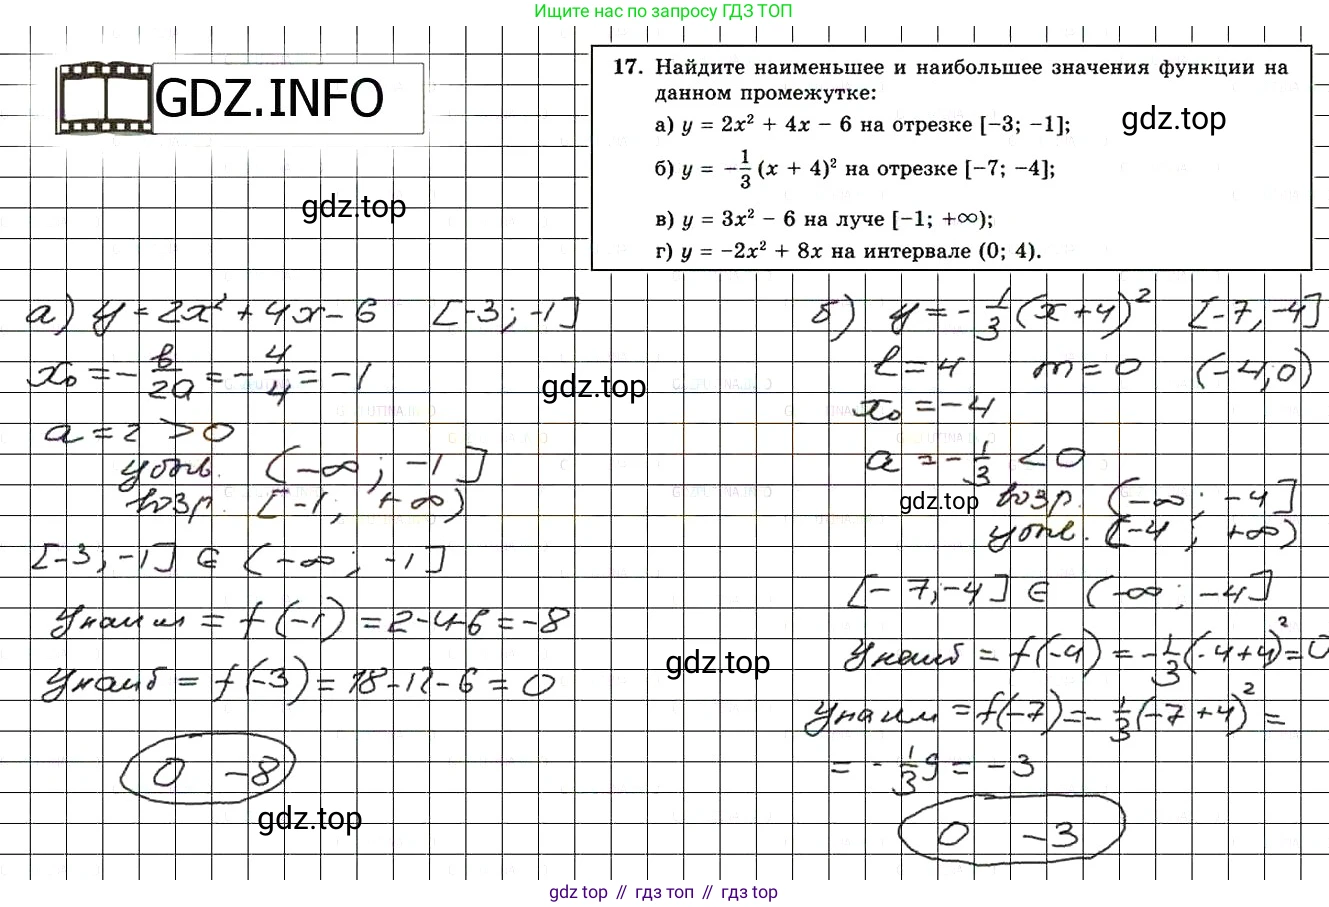 Ищите нас по запросу ГДЗ ТОП
GDZ.INFO
17. Найдите наименьшее и наибольшее значения функции на
данном промежутке:
а) y = 2x² + 4x − 6 на отрезке [−3; −1];
gdz.top
б) y = −1/3 (x + 4)² на отрезке [−7; −4];
в) y = 3x² − 6 на луче [−1; +∞);
г) y = −2x² + 8x на интервале (0; 4).
gdz.top
а) y = 2x² + 4x − 6 [−3; −1]
x₀ = −в/2a = −4/4 = −1
gdz.top
a = 2 > 0
убыв. (−∞; −1]
возр. [−1, +∞)
[−3; −1] ∈ (−∞; −1]
Yнаим = f(−1) = 2−4−6 = −8
Yнаиб = f(−3) = 18−12−6 = 0
gdz.top
0 −8
gdz.top
б) y = −1/3 (x+4)² [−7, −4]
l = 4 m = 0 (−4; 0)
x₀ = −4
a = −1/3 < 0
gdz.top
возр. (−∞; −4]
убыв. [−4; +∞)
[−7; −4] ∈ (−∞; −4]
Yнаиб = f(−4) = −1/3 (−4+4)² = 0
Yнаим = f(−7) = −1/3 (−7+4)² =
= −1/3 9 = −3
0 −3
gdz top // гдз топ // гдз top